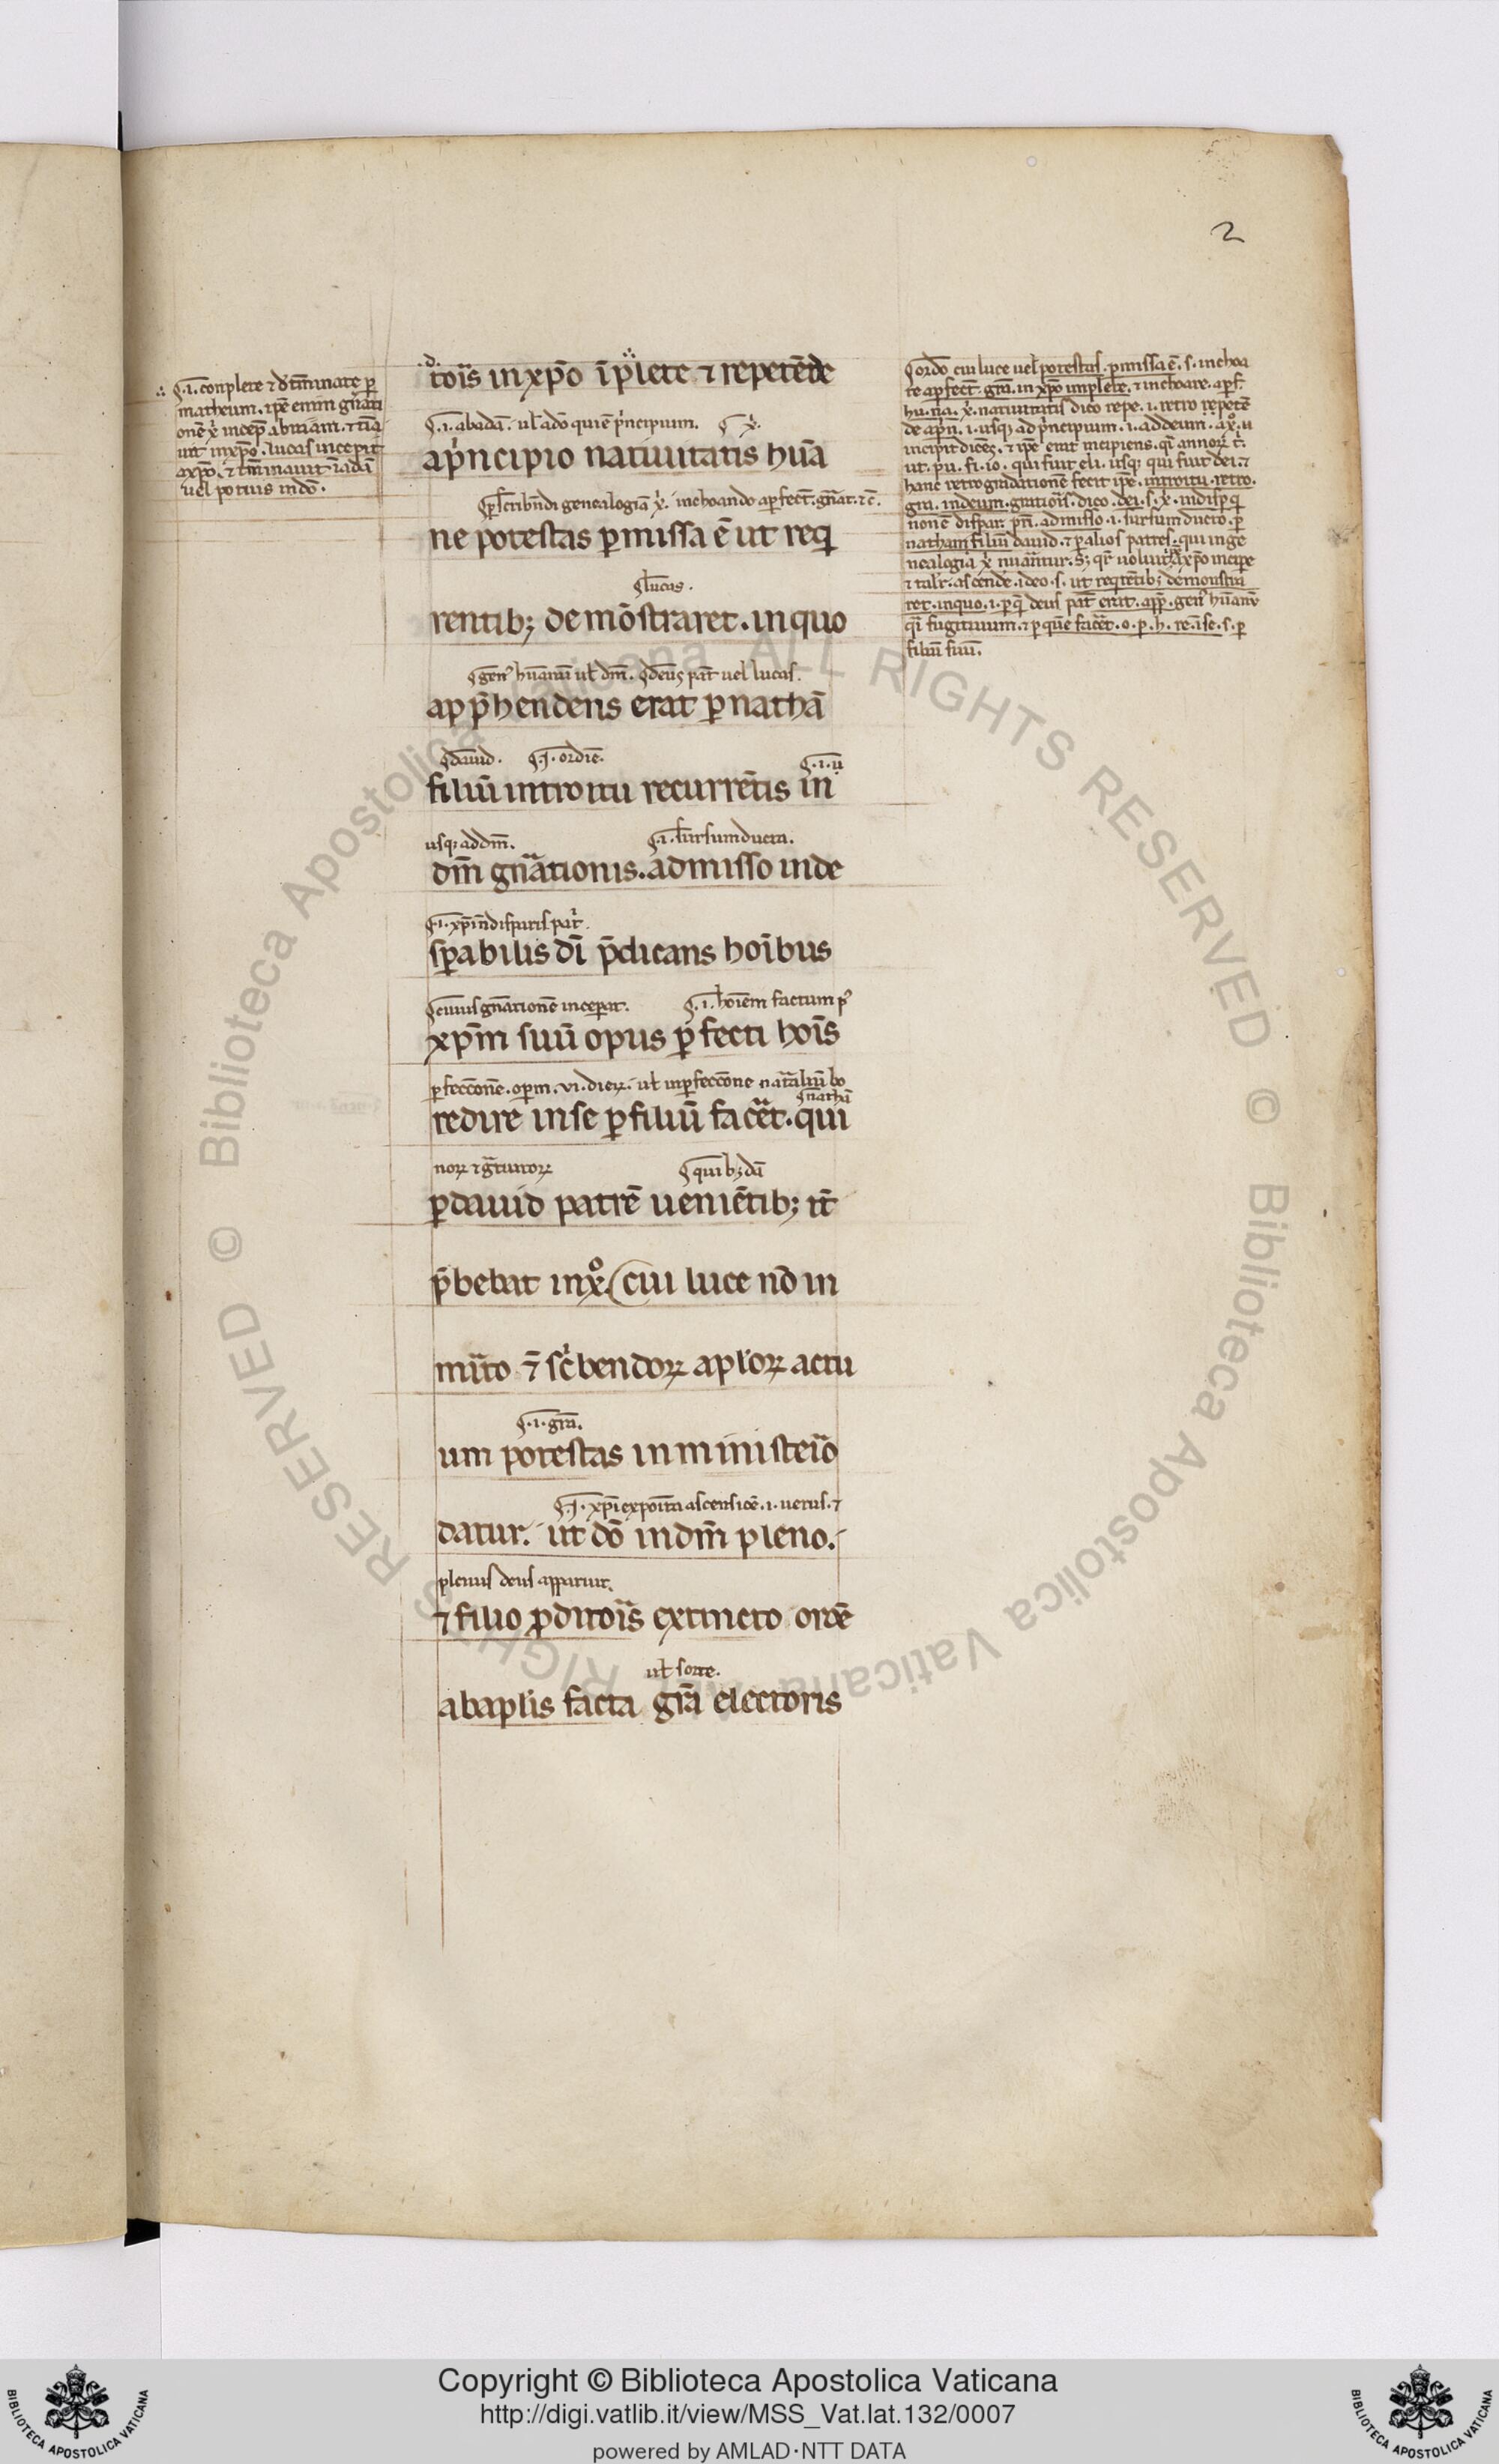 2
∴ .i. conplete ⁊ dt̄minate p
matheum. ipē enim gn̄ati
onē xp̄i incep̄ abraam. ⁊ t̄mi
uit in xp̄o. lucas incepit
a xp̄o. ⁊ t̄minauit ī adā
uel potius in dō.
toīs in xp̄o īplete ⁊ repetēde
.i. ab adā. ul̄ a dō qui ē principium. xp̄i.
a principio natiuitatis hūa
scribn̄di genealogiā xp̄i. inchoando a pfect̄. gn̄at. ⁊c̄.
ne potestas pmissa ē ut req
lucas.
rentib; demōstraret. in quo
gen̄ hūanū ul̄ dm̄. deus pat̄ uel lucas.
app̄hendens erat p nathā
dauid. ordīe. .i. u
filiū introitu recurrētis in
usq; ad dm̄. .i. sursum ducta.
dm̄ gn̄ationis. admisso inde
.i. xp̄i indisparis patr̄
sp̄abilis dī p̄dicans hoībus
cuius gn̄ationē inceperat. .i. hoīem factum p̄
xp̄m suū opus p̄fecti hoīs
pfeccōnē. opm̄. vi. dieꝝ. ul̄ in pfeccōne natāliū bo
nathā
redire in se p filiū facēt. qui
noꝝ ⁊ gratuitoꝝ quib; dā
p dauid patrē ueniētib; it̄
p̄bebat in xp̄o. cui luce nō in
mito ⁊ sc̄bendoꝝ apl'oꝝ actu
.i. grā.
um potestas in ministerio
xp̄i ex poīta ascensiōe. i. uerus. ⁊
datur. ut dō in dm̄ pleno.
plenus deus apparuit.
⁊ filio pditoīs extincto orōe
ul̄ sorte.
ab apl'is facta grā electoris
ordo. cui luce uel potestas. pmissa ē. s. inchoa
te a pfect̄. grā. in xp̄o implete. ⁊ inchoare. a pf.
hu. na. xp̄i. natiuitatis dico repe. i. retro repetē
de a prin. i. usq; ad principium. i. ad deum. a xp̄o. u
incipit dicēs. ⁊ ipē erat incipiens. qi annoꝝ t̄.
ut. pu. fi. io. qui fuit eli. usq; qui fuit dei. ⁊
hanc retrogradationē fecit ipē. introitu. retro.
gra. in deum. gratiōis. dico. dei. s. xp̄i. indispq
non ē dispar. pri. admisso. i. sursum ducto. p
natham filiū dauid. ⁊ p alios patres. qui in ge
nealogia xp̄i nūantur. S; qr uoluit a xp̄o incipe
⁊ talr. ascende. ideo. s. ut reqrētib; demonstra
ret. in quo. i. p q deus pat̄ erat. app. gen̄ hūanū
qi fugitiuum. ⁊ p quē facēt. o. p. h. re. ī se. s. p
filiū suū.
Copyright © Biblioteca Apostolica Vaticana
http://digi.vatlib.it/view/MSS_Vat.lat.132/0007
powered by AMLAD·NTT DATA